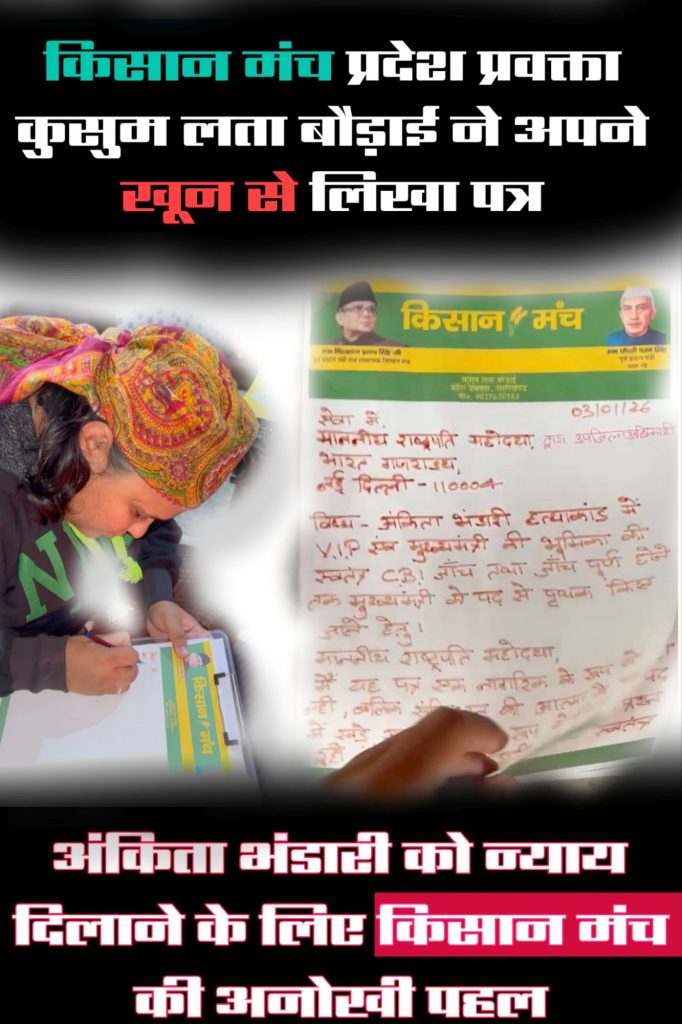 किसान मंच प्रदेश प्रवक्ता
कुसुम लता बौड़ाई ने अपने
खून से लिखा पत्र
किसान मंच
प्रदेश प्रवक्ता, उत्तराखण्ड
03/01/26
सेवा में,
माननीय राष्ट्रपति महोदया, द्वारा उपजिलाधिकारी
भारत गणराज्य,
नई दिल्ली - 110004
विषय - अंकिता भंडारी हत्याकांड में
V.I.P एंव मुख्यमंत्री की भूमिका की
स्वतंत्र C.B.I जाँच तथा जाँच पूर्ण होने
तक मुख्यमंत्री के पद से पृथक किए
जाने हेतु।
माननीय राष्ट्रपति महोदया,
मैं यह पत्र एक नागरिक के रूप में
नहीं, बल्कि की आत्मा
में खड़े
स्वतंत्र
किसान मंच
अंकिता भंडारी को न्याय
दिलाने के लिए किसान मंच
की अनोखी पहल